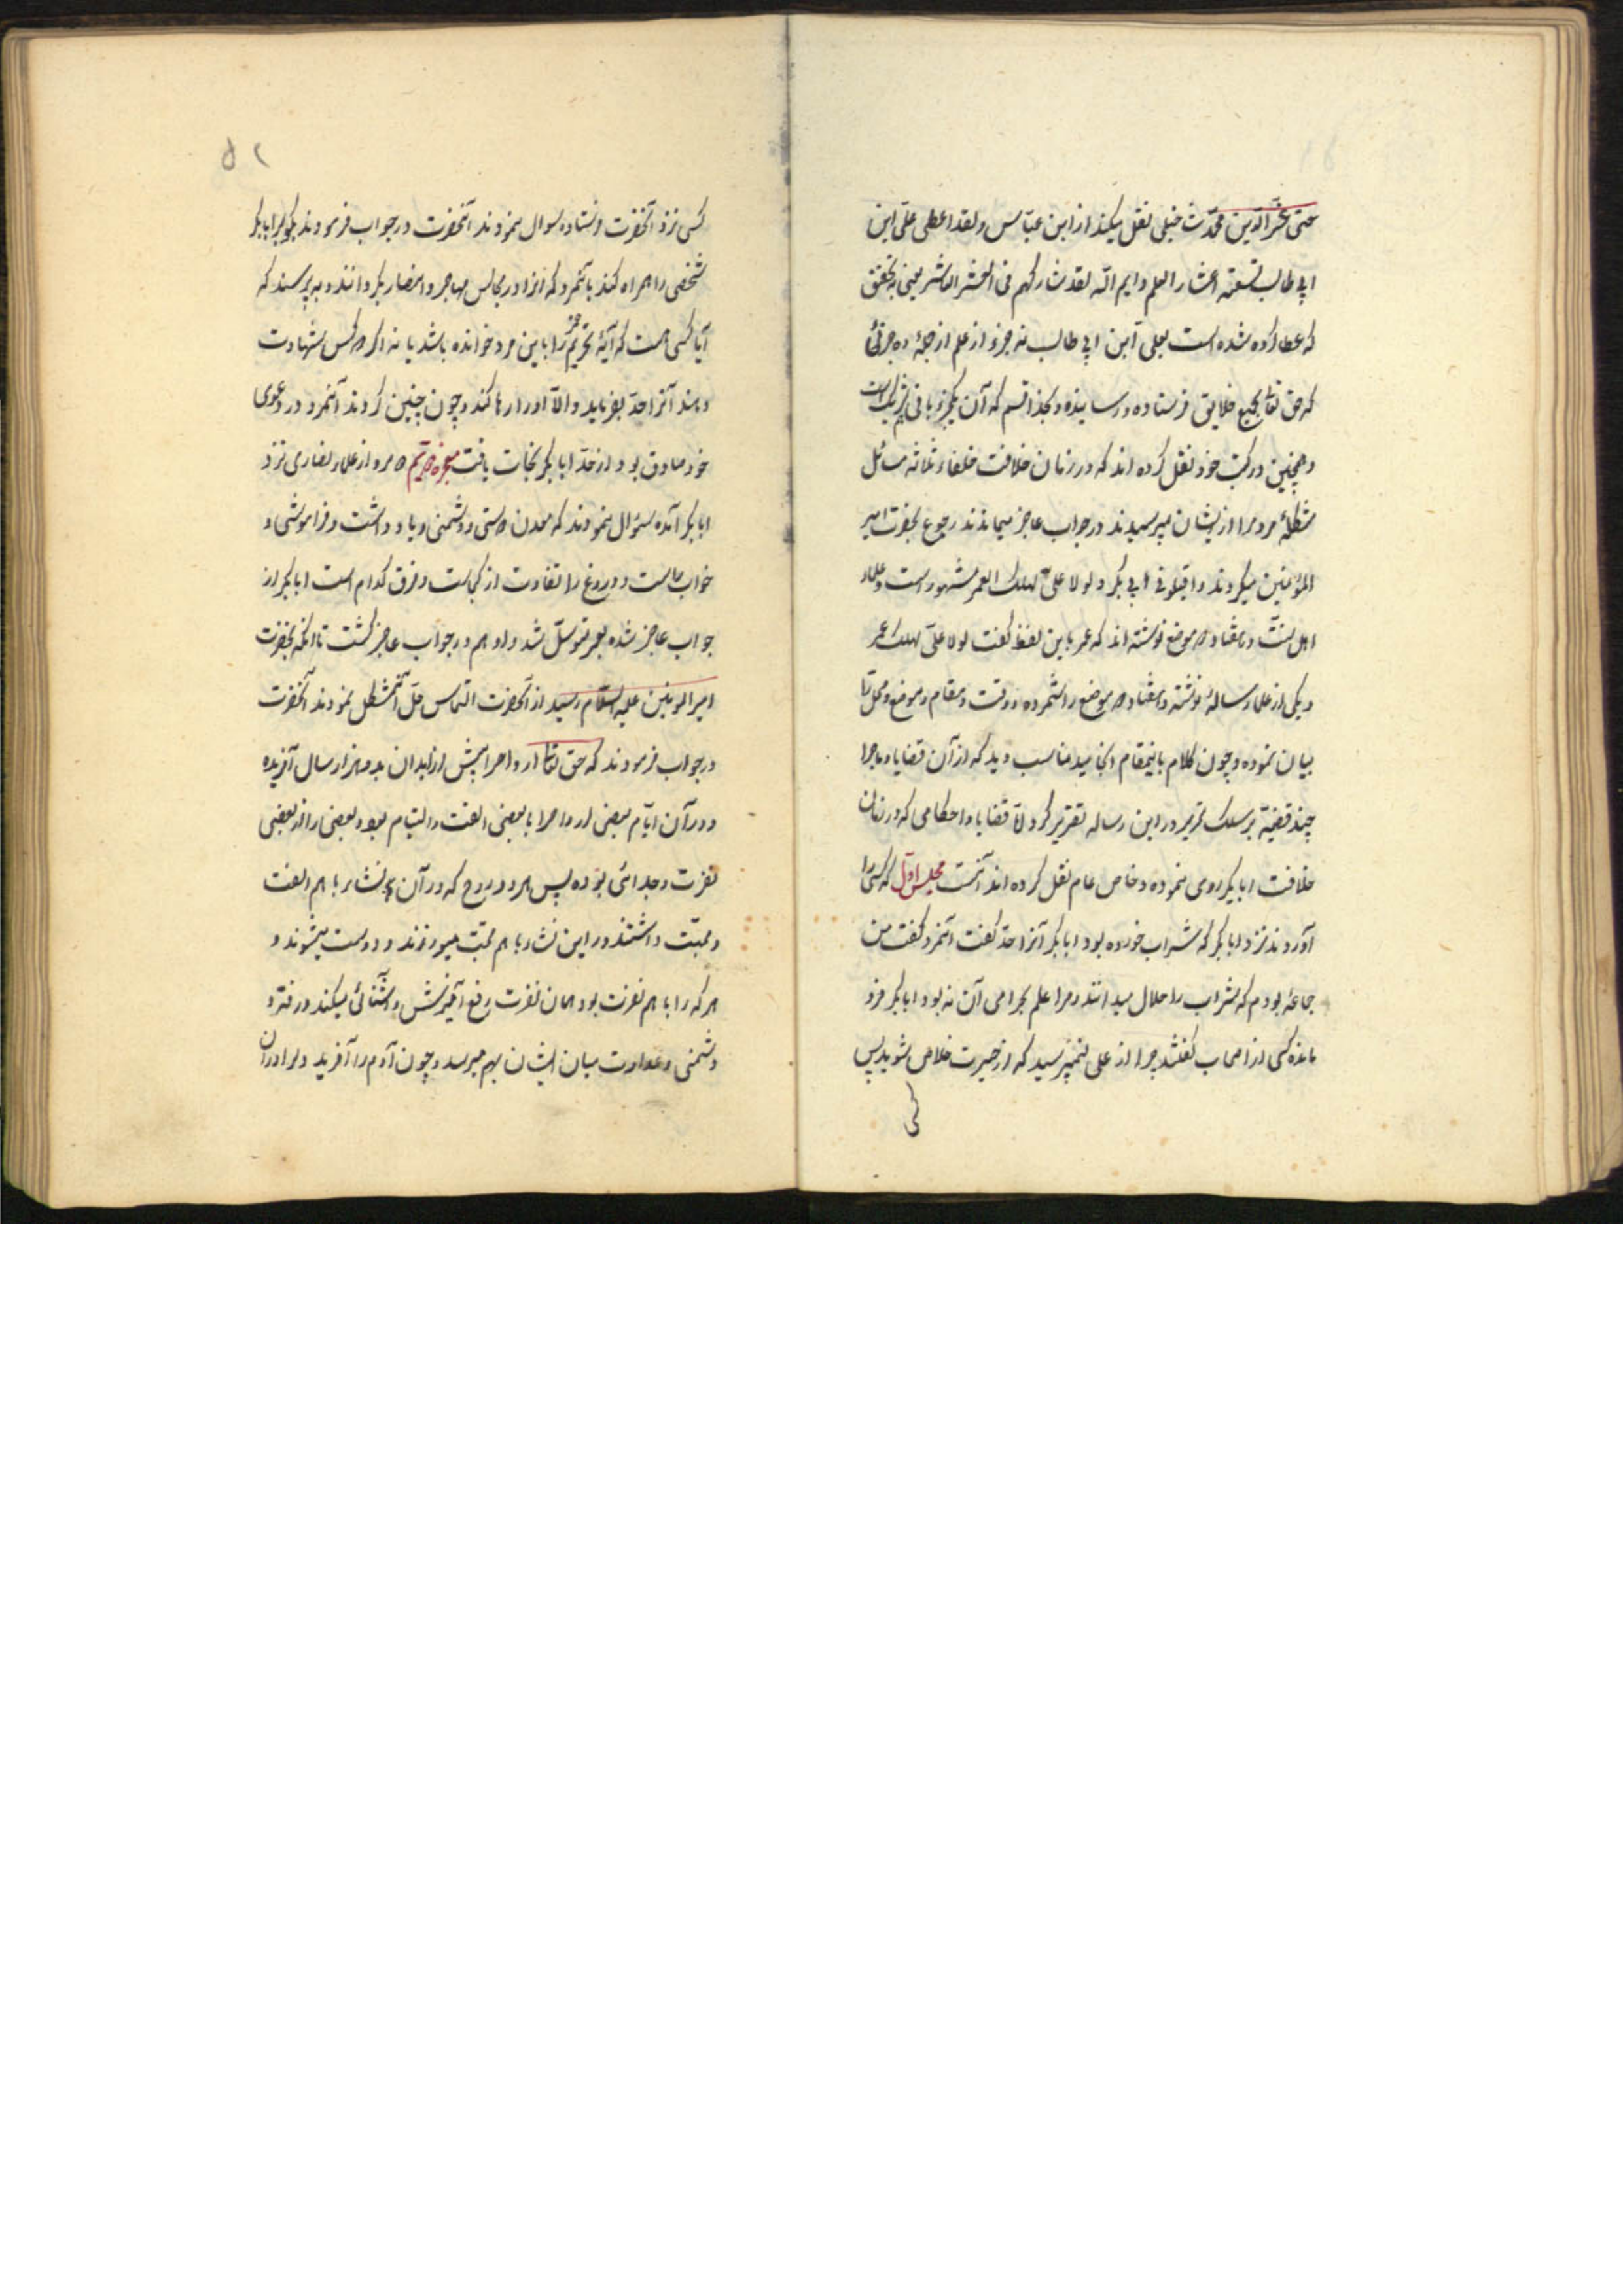 حتی عزّ الدین محدّث حنبلی نقل میکند از ابن عبّاس ولقد اعطی علیّ ابن
ابی طالب تسعة اعشار العلم وایم الله لقد شارکهم فی العشر العاشر یعنی بتحقیق
که عطا کرده شده است بعلی ابن ابی طالب نه جزو از علم از جملهٔ ده جزئی
که حق تعالی بجمیع خلایق فرستاده و رسانیده و بخدا قسم که آن یکجزو باقی شریک است
و همچنین در کتب خود نقل کرده اند که در زمان خلافت خلفاء ثلاثه مسائل
مشکله مردم را از ایشان میپرسیدند در جواب عاجز میماندند رجوع بحضرت امیر
المؤمنین میکردند و اقیلونی ابی بکر و لولا علیّ لهلک العمر مشهور است و علماء
اهل سنّت در هفتاد موضع نوشته اند که عمر باین لفظ گفت لولا علیّ لهلک عمر
و یکی از علما رسالهٔ نوشته و هفتاد موضع را شمرده و وقت و مقام و موضع و محل
بیان نموده و چون کلام باینمقام انجامید مناسب دید که از آن قضایا و ماجرا
چند قضیّه بر سلک تحریر در این رساله تقریر کرد قضایا و احکامی که در زمان
خلافت ابابکر روی نموده و خاص عام نقل کرده اند آنست مجلس اوّل که کسی را
آوردند نزد ابابکر که شراب خورده بود ابابکر آنرا حدّ گفت آنمرد گفت من
جماعهٔ بودم که شراب را حلال میدانند و مرا علم بحرامی آن نه بود ابابکر فرو
مانده کسی از اصحاب گفتند چرا از علی نمیپرسید که از حیرت خلاص شوید پس
کسی
۵۲
کسی نزد آنحضرت فرستاده سوال نمودند آنحضرت در جواب فرمودند بگو ابابکر
شخصی را همراه کند بآنمرد که آنرا در مجالس مهاجر و انصار بگردانند و به پرسند که
آیا کسی هست که آیهٔ تحریم خمر را باین مرد خوانده باشد یا نه اگر دو کس شهادت
دهند آنرا حدّ بفرماید والاّ او را رها کند و چون چنین کردند آنمرد در دعوی
خود صادق بود و از حدّ ابابکر نجات یافت معجزه دویّم دو مرد از علماء نصاری نزد
ابابکر آمده سئوال نمودند که معدن دوستی و دشمنی و یاد داشت و فراموشی و
خواب راست و دروغ را تفاوت از کجاست و فرق کدام است ابابکر از
جواب عاجز شده بعمر متوسّل شد و او هم در جواب عاجز گشت تا آنکه بحضرت
امیر المومنین علیه السّلام رسید از آنحضرت التماس حلّ آنمشکل نمودند آنحضرت
در جواب فرمودند که حق تعالی ارواحرا پیش از ابدان بدو هزار سال آفریده
و در آن ایّام بعضی ارواحرا با بعضی الفت و التیام بود و بعضی را از بعضی
نفرت و جدائی بوده پس هر دو روح که در آن نشاء با هم الفت
و محبّت داشتند در این نشاء با هم محبّت میورزند و دوست میشوند و
هر که را با هم نفرت بود همان نفرت رفع آمیزش و آشنائی میکند و رفته رفته
دشمنی و عداوت میان ایشان بهم میرسد و چون آدم را آفرید